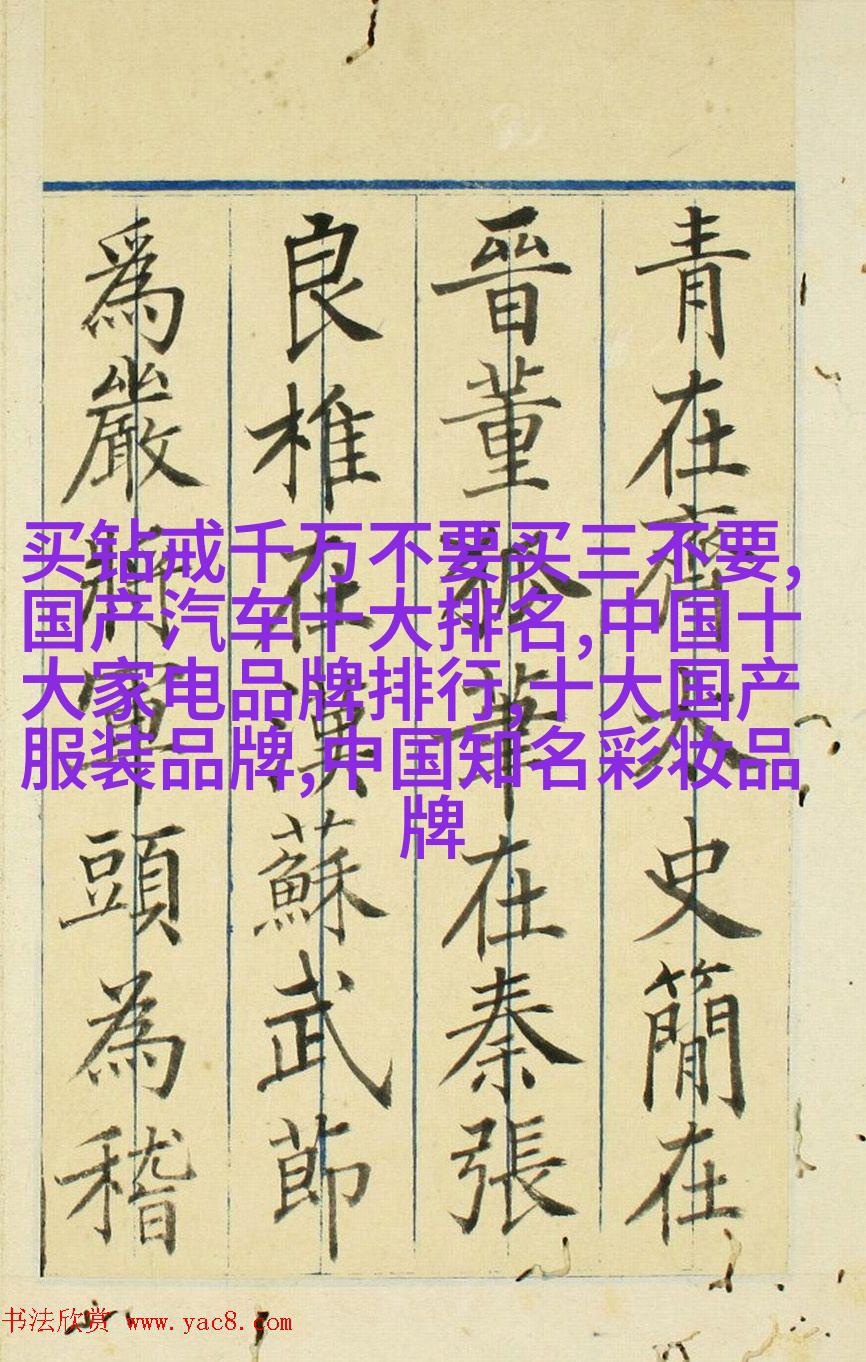 青在齊太史簡在
晉董狐筆在秦張
良椎在漢蘇武節
爲嚴將軍頭為稽
买钻戒千万不要买三不要,
国产汽车十大排名,中国十
大家电品牌排行,十大国产
服装品牌,中国知名彩妆品
牌
书法欣赏 www.yac8.com